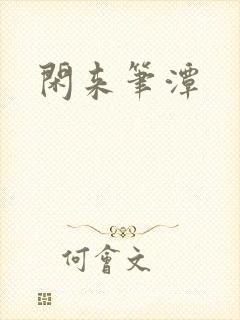 閑来筆潭
何會文